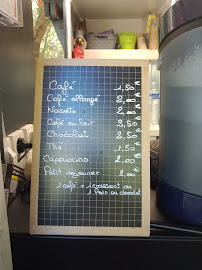 Café 1,50€
Café allongé 2,00€
Noisette 2,00€
Café au lait 2,50€
Chocolat 2,50€
Thé 1,50€
Cappuccino 2,00€
Petit déjeuner 2,00€
1 café + 1 croissant ou
1 Pain au chocolat